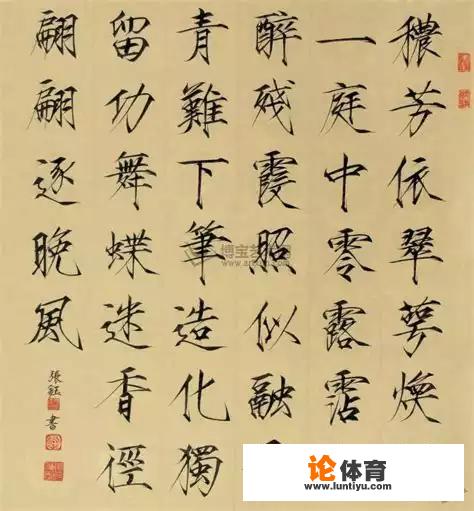 穠芳依翠萼煥
一庭中零露霑
醉殘霞照似融
青難下筆造化獨
留功舞蝶迷香徑
翩翩逐晚風
張鈺書
论体育
www.luntiyu.com